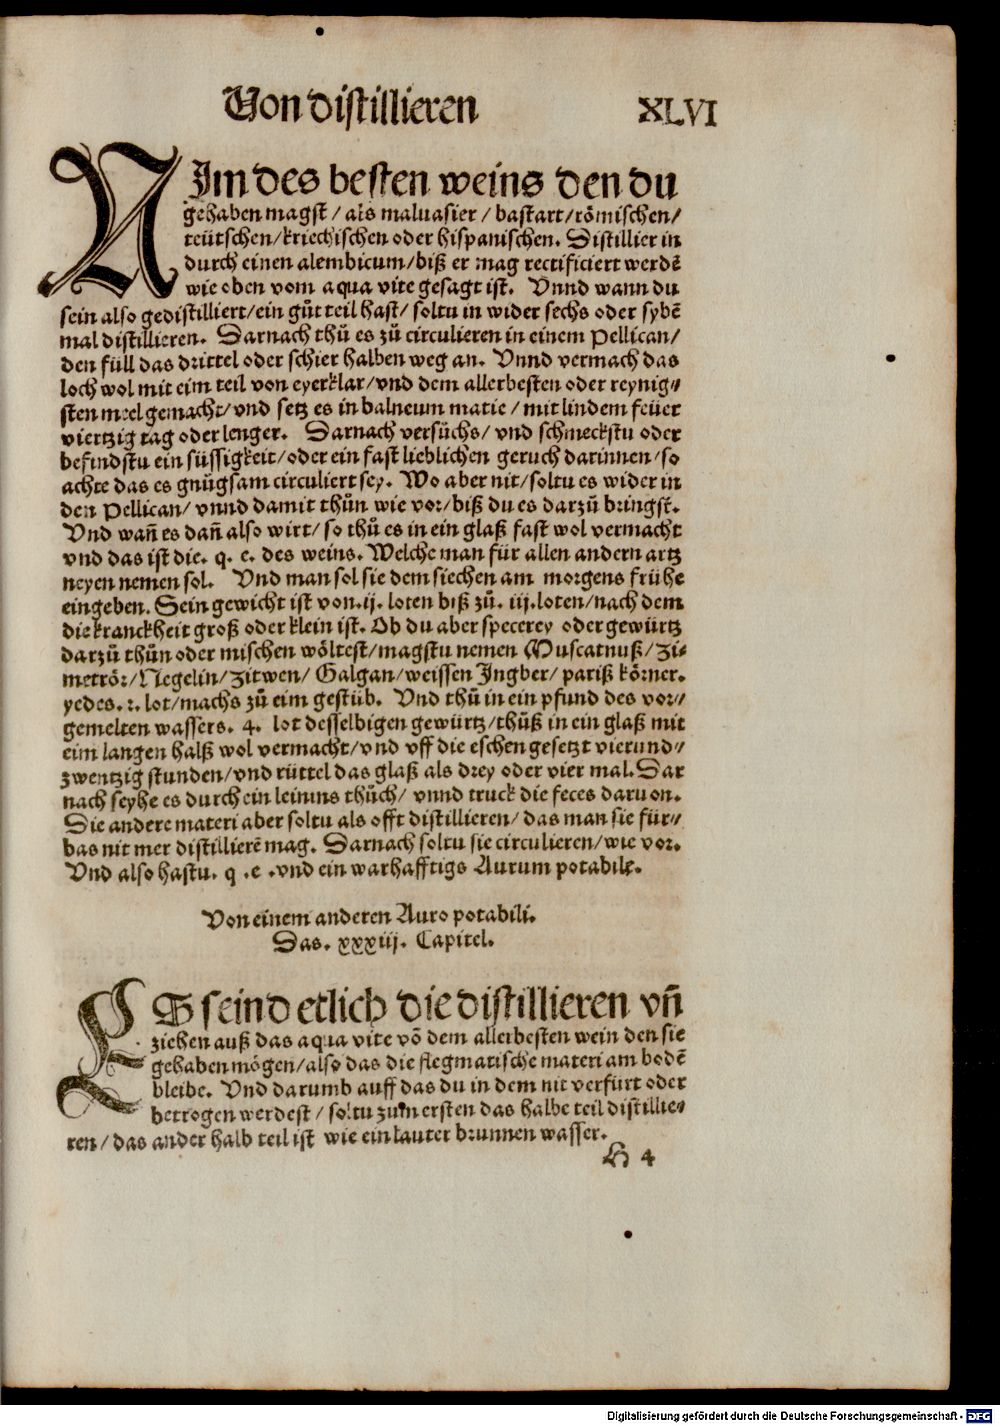 Von distillieren XLVI
NIm des besten weins den du
gehaben magst / als maluasier / bastart / römischen /
teütschen / kriechischen oder hispanischen. Distillier in
durch einen alembicum / biß er mag rectificiert werdē
wie oben vom aqua vite gesagt ist. Vnnd wann du
sein also gedistilliert / ein gůt teil hast / soltu in wider sechs oder sybē
mal distillieren. Darnach thů es zů circulieren in einem Pellican /
den füll das drittel oder schier halben weg an. Vnnd vermach das
loch wol mit eim teil von eyerklar / vnd dem allerbesten oder reynig⸗
sten meel gemacht / vnd setz es in balneum marie / mit lindem feüer
viertzig tag oder lenger. Darnach versůchs / vnd schmeckstu oder
befindstu ein süssigkeit / oder ein fast lieblichen geruch darinnen / so
achte das es gnůgsam circuliert sey. Wo aber nit / soltu es wider in
den Pellican / vnnd damit thůn wie vor / biß du es darzů bringst.
Vnd wañ es dañ also wirt / so thů es in ein glaß fast wol vermacht
vnd das ist die. q. e. des weins. Welche man für allen andern artz
neyen nemen sol. Vnd man sol sie dem siechen am morgens frühe
eingeben. Sein gewicht ist von. ij. loten biß zů. iij. loten / nach dem
die kranckheit groß oder klein ist. Ob du aber specerey oder gewürtz
darzů thůn oder mischen wöltest / magstu nemen Muscatnuß / Zi⸗
metrör / Negelin / Zitwen / Galgan / weissen Ingber / pariß körner.
yedes. 2. lot / machs zů eim gestüb. Vnd thů in ein pfund des vor⸗
gemelten wassers. 4. lot desselbigen gewürtz / thůß in ein glaß mit
eim langen halß wol vermacht / vnd vff die eschen gesetzt vierund⸗
zwentzig stunden / vnd rüttel das glaß als drey oder vier mal. Dar
nach seyhe es durch ein leinins thůch / vnnd truck die feces daruon.
Die andere materi aber soltu als offt distillieren / das man sie für⸗
bas nit mer distillierē mag. Darnach soltu sie circulieren / wie vor.
Vnd also hastu. q. e. vnd ein warhafftigs Aurum potabile.
Von einem anderen Auro potabili.
Das. xxxiij. Capitel.
ES seind etlich die distillieren vñ
ziehen auß das aqua vite vō dem allerbesten wein den sie
gehaben mögen / also das die flegmatische materi am bodē
bleibe. Vnd darumb auff das du in dem nit verfürt oder
betrogen werdest / soltu zum ersten das halbe teil distillie⸗
ren / das ander halb teil ist wie ein lauter brunnen wasser.
H 4
Digitalisierung gefördert durch die Deutsche Forschungsgemeinschaft - DFG